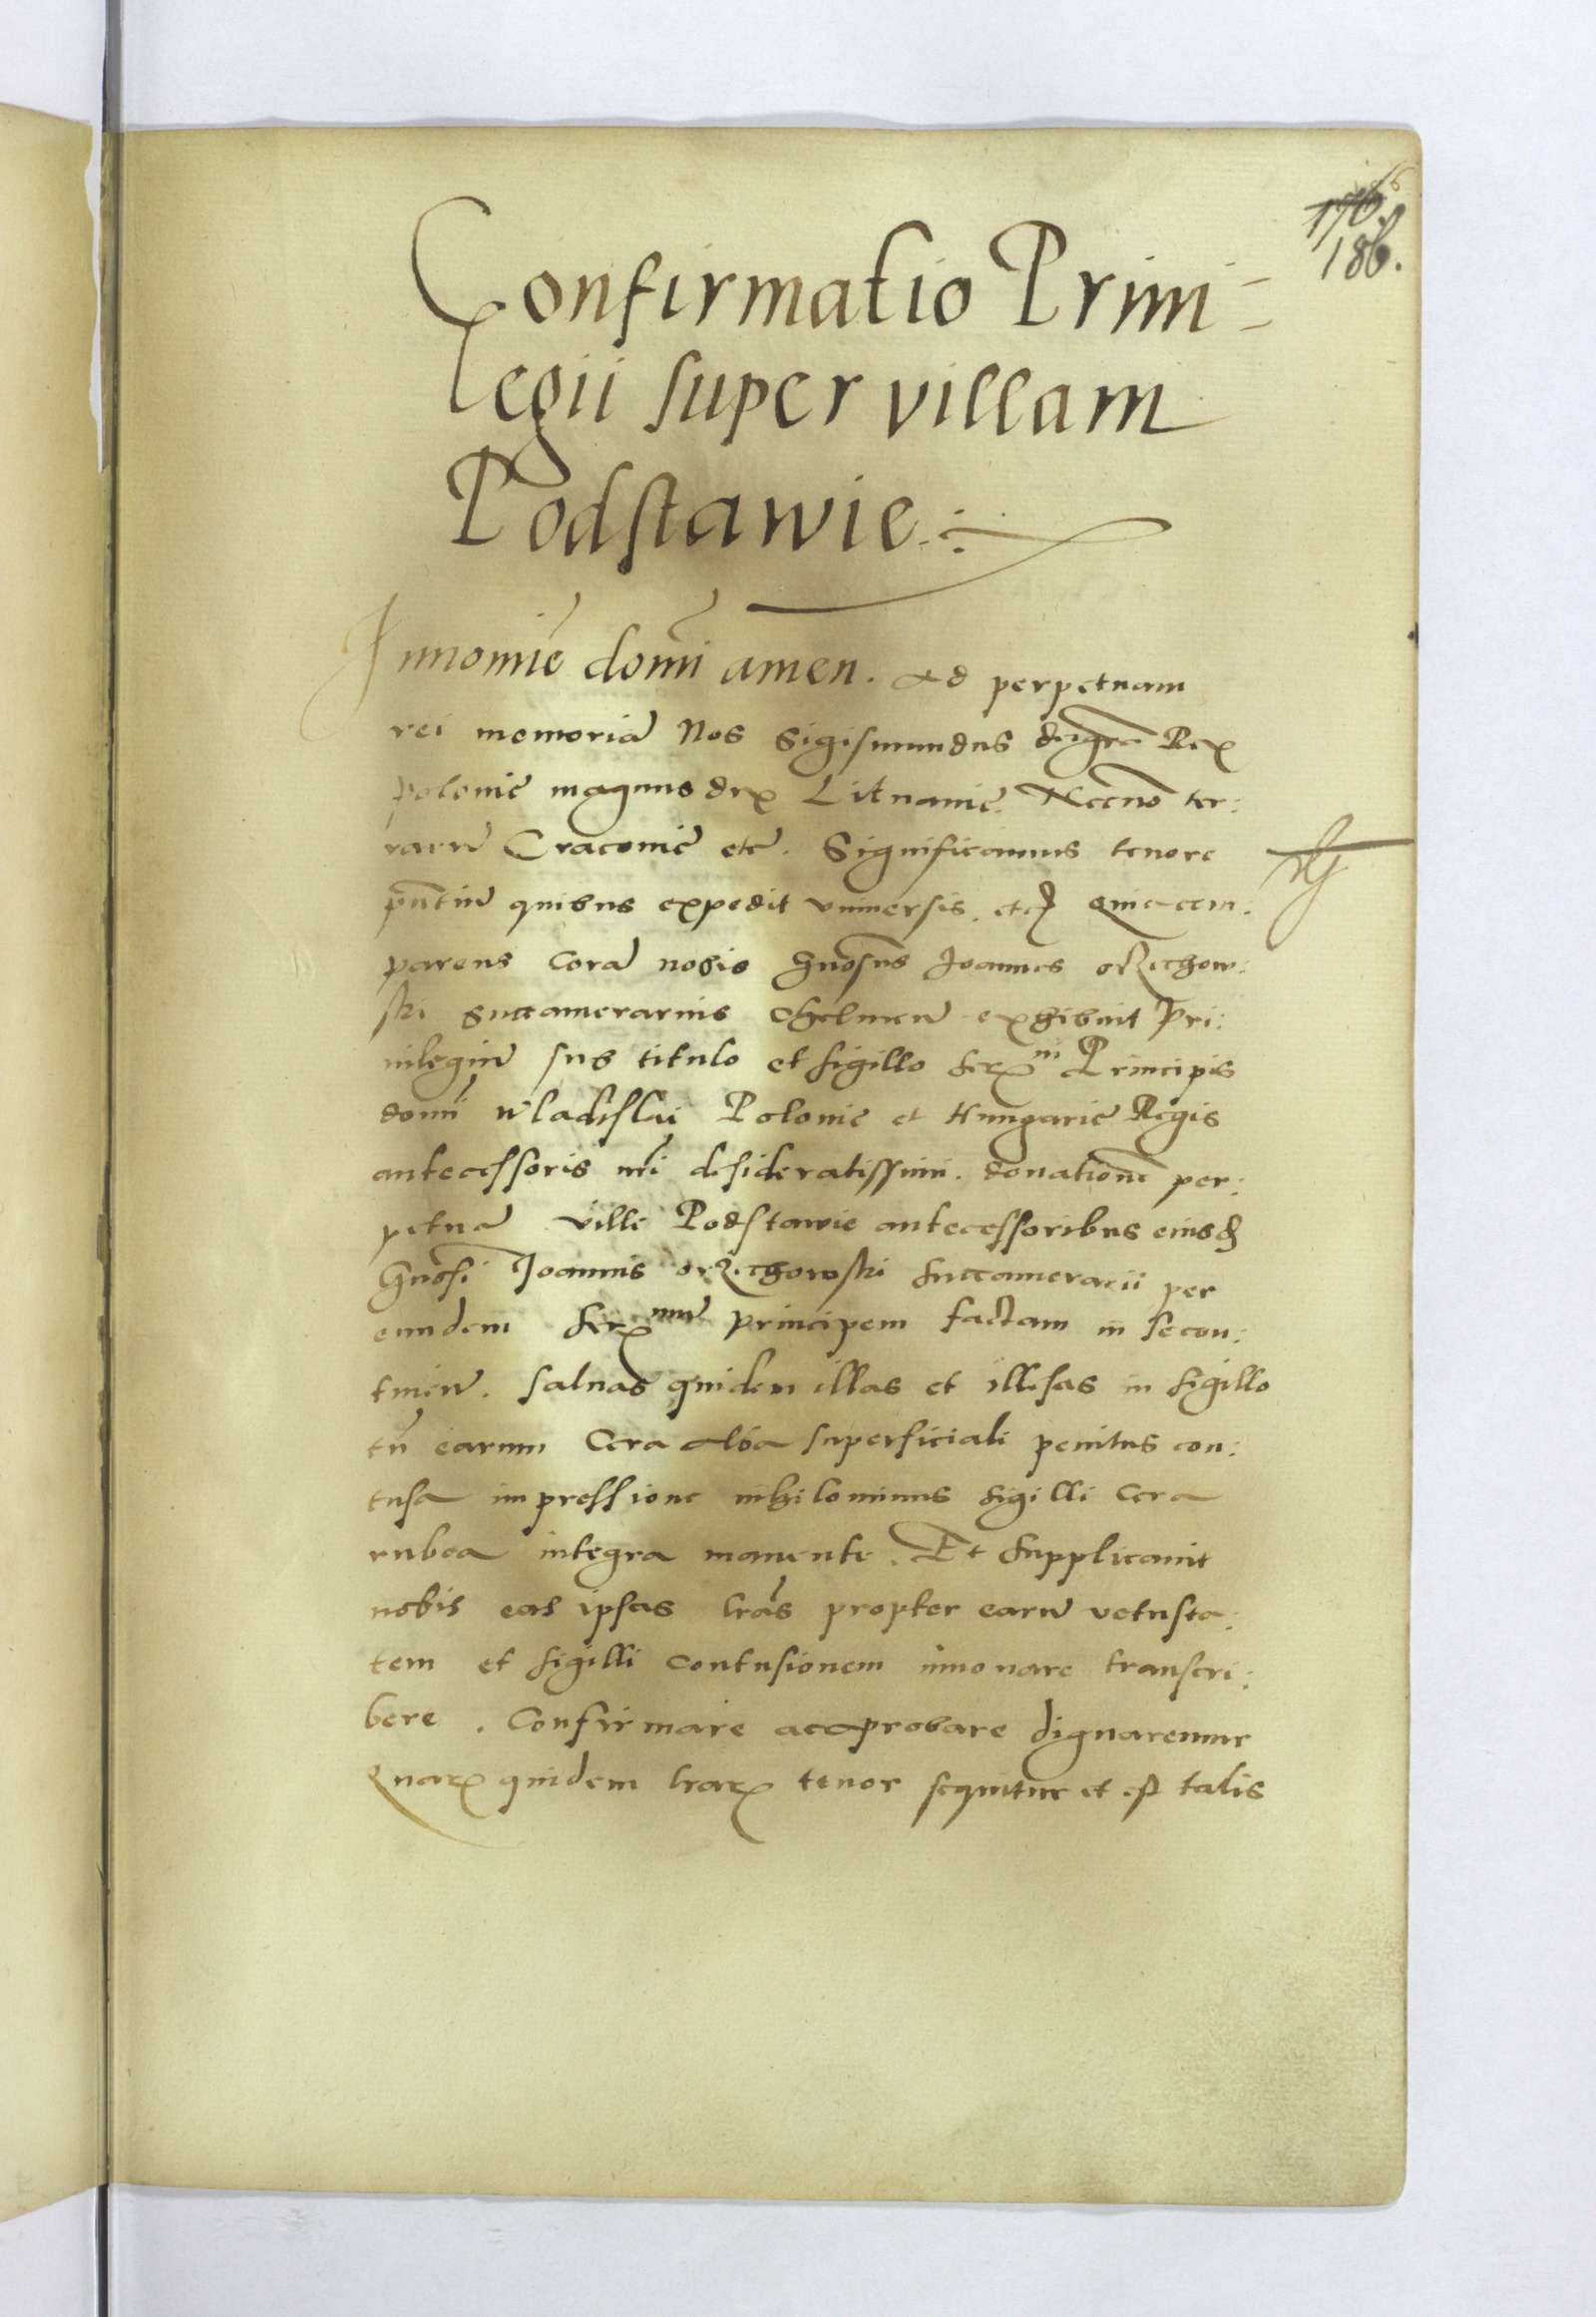 186.
Confirmatio Priui=
legii super villam
Podstawie.:
In nomīe domī amen. Ad perpetuam
rei memoriā Nos Sigismundus dei gr̄a Rex
polonie magnus dux Lituanie. Necnō ter:
rarū Cracouie etc̄. Significamus tenore
pn̄tiū quibus expedit vniuersis. Quia com:
parens corā nobis Gn̄osus Joannes orzechow:
ski Succamerarius Chelmen̄ exhibuit Pri:
uilegiū sub titulo et sigillo Serᵐⁱ Principis
domī Wladislai Polonie et Hungarie Regis
antecessoris nr̄i desideratissimi. donationē per:
petuā ville Podstawie antecessoribus eiusd
Gn̄osi Joannis orzechowski Succamerarii per
eundem Serᵐᵘ̄ principem factam in se con:
tinen̄. saluas quidem illas et illesas in sigillo
tn̄ earum Cera alba superficiali penitus con:
tusa impressione nihilominus sigilli Cera
rubea integra manente. Et supplicauit
nobis eas ipsas lrās propter earū vetusta:
tem et sigilli contusionem innouare transcri:
bere. Confirmare ac approbare dignaremur
Quarꝝ quidem lrarꝝ tenor sequitur et est talis